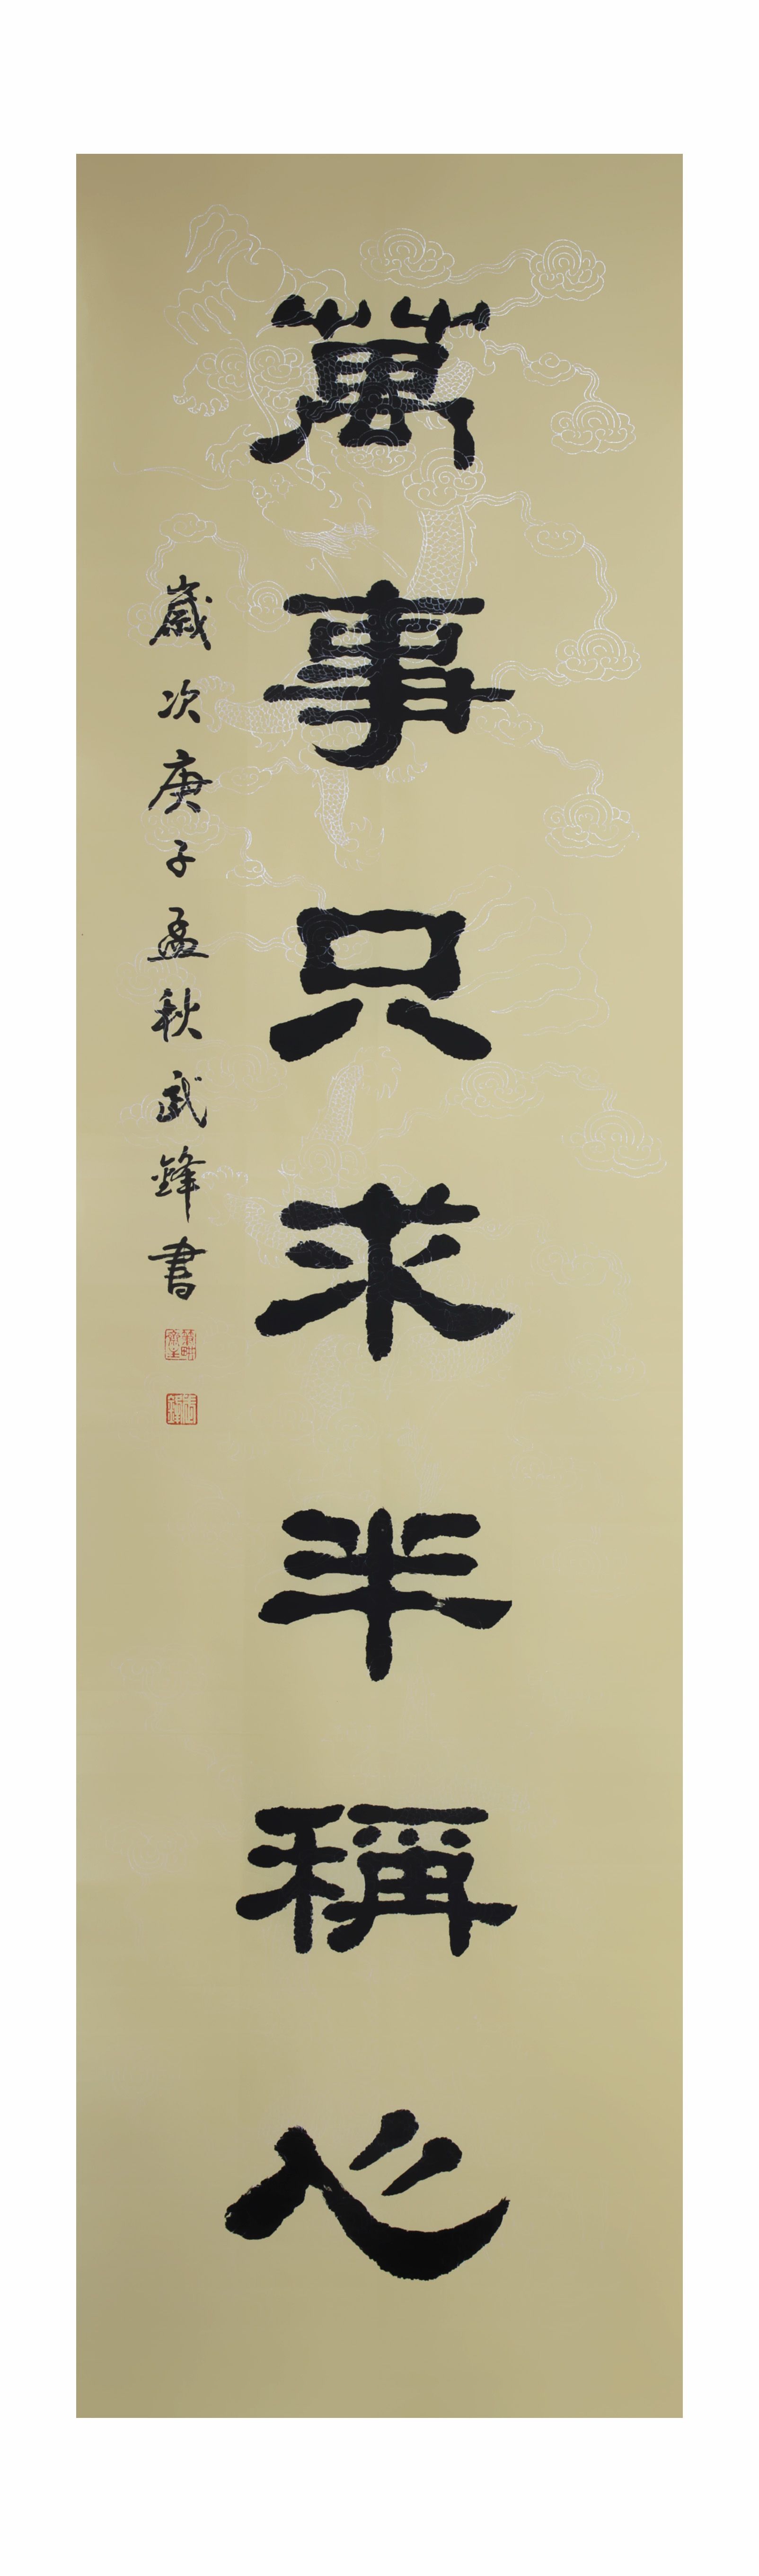 萬事只求半稱心
歲次庚子孟秋武鋒書